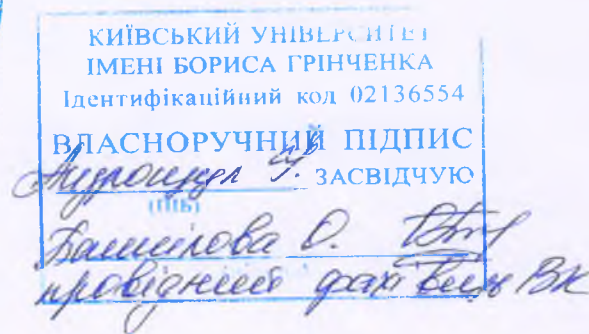 КИЇВСЬКИЙ УНІВЕРСИТЕТ
ІМЕНІ БОРИСА ГРІНЧЕНКА
Ідентифікаційний код 02136554
ВЛАСНОРУЧНИЙ ПІДПИС
ЗАСВІДЧУЮ
(ПІБ)
О.
провідний фахівець ВК